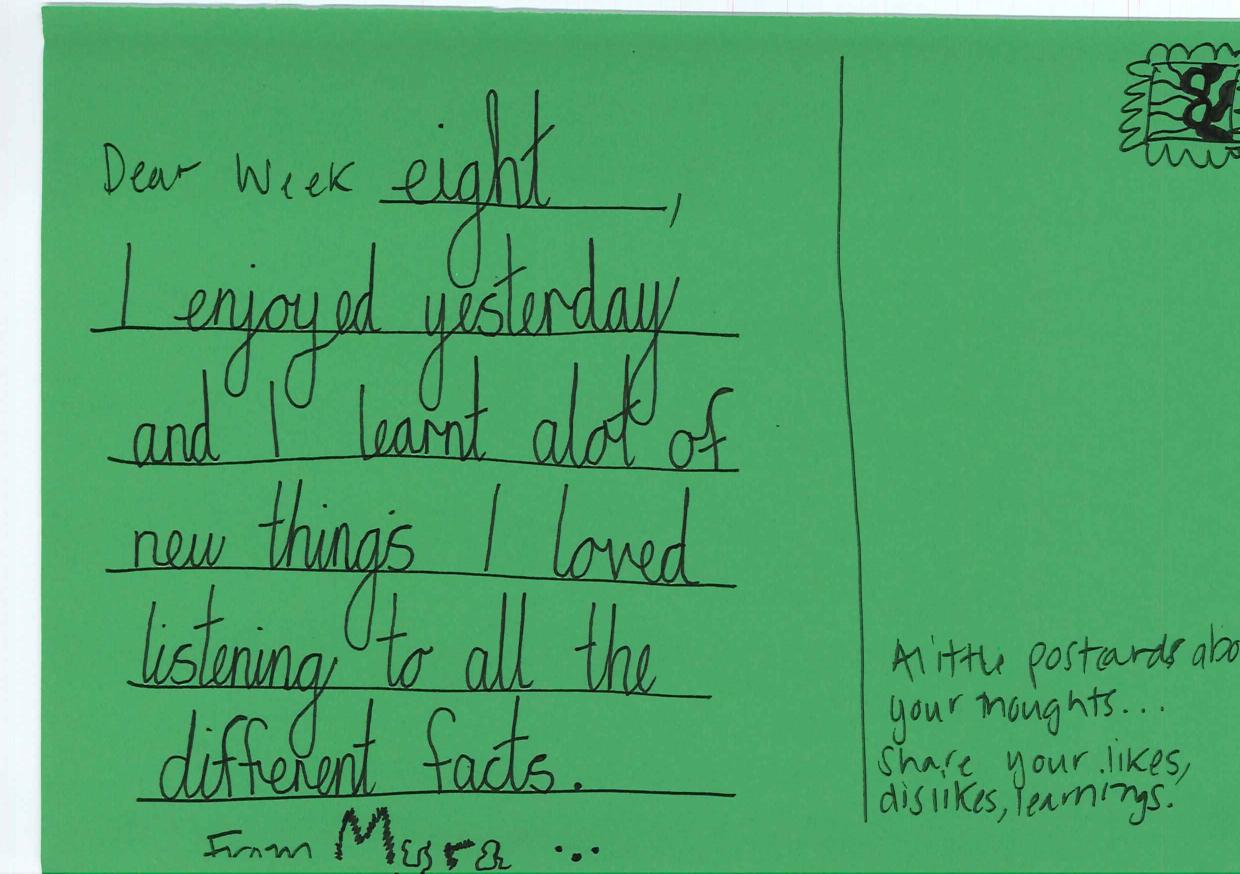 Dear Week eight,
I enjoyed yesterday
and I learnt alot of
new things I loved
listening to all the
different facts.
From
A little postcards abo
your thoughts...
Share your likes,
dislikes, learnings.